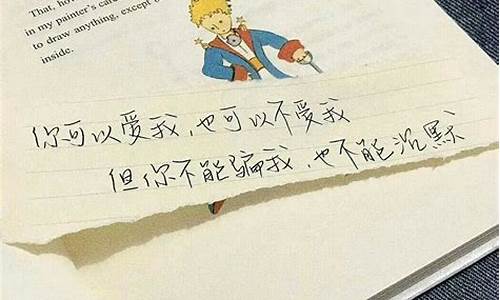 That, how
in my painter's care
to draw anything, except
inside.
你可以爱我,也可以不爱我
但你不能骗我,也不能沉默